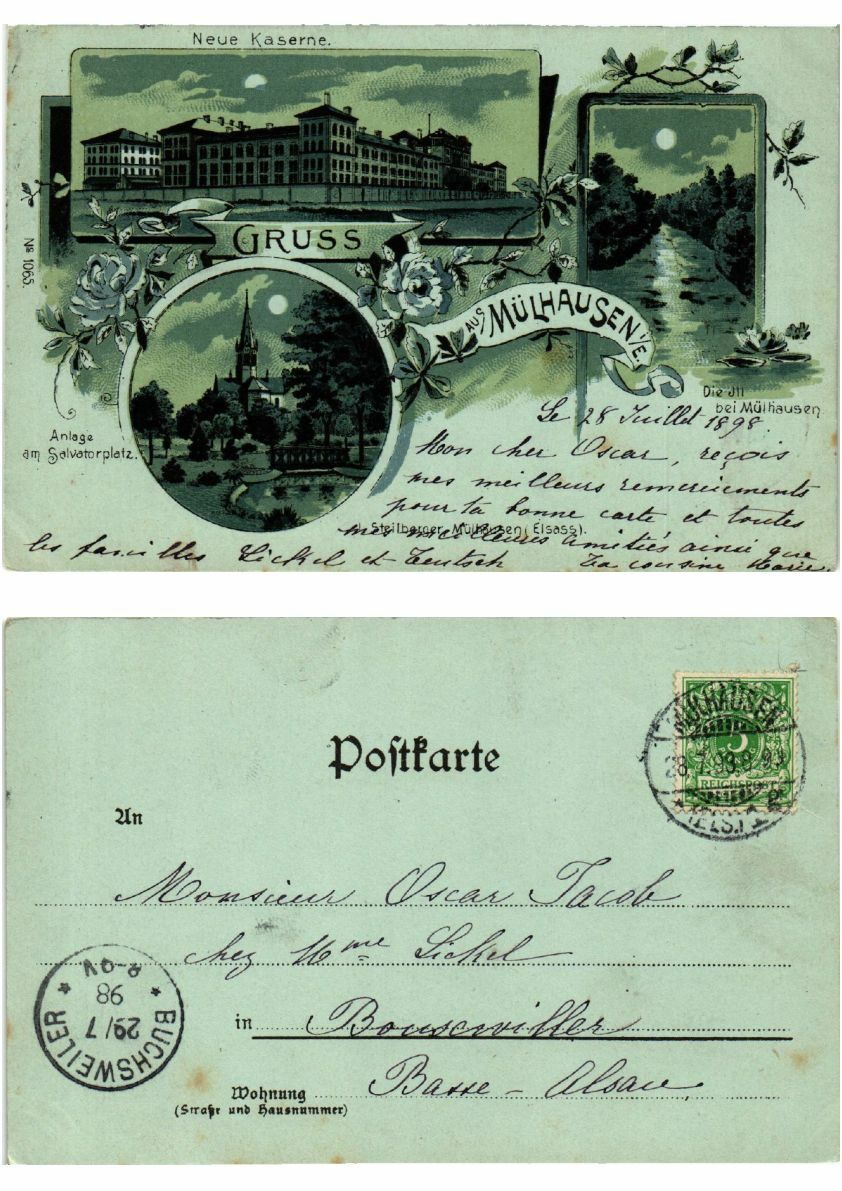 Neue Kaserne.
No 1065.
GRUSS
AUS MÜLHAUSEN I/E.
Die Jll
bei Mülhausen
Anlage
am Salvatorplatz.
Le 28 Juillet 1898
Mon cher Oscar, reçois
mes meilleurs remerciements
pour ta bonne carte et toutes
J. Steilberger, Mülhausen (Elsass).
mes meilleures amitiés ainsi que
les familles Sickel et Teutsch
Ta cousine Marie
Postkarte
MÜLHAUSEN
28.7.98
(ELS.)
5
REICHSPOST
An
Monsieur Oscar Jacob
chez Mme Sickel
in Bouxwiller
Basse-Alsace
BUCHSWEILER
29/7
98
Wohnung
(Straße und Hausnummer)